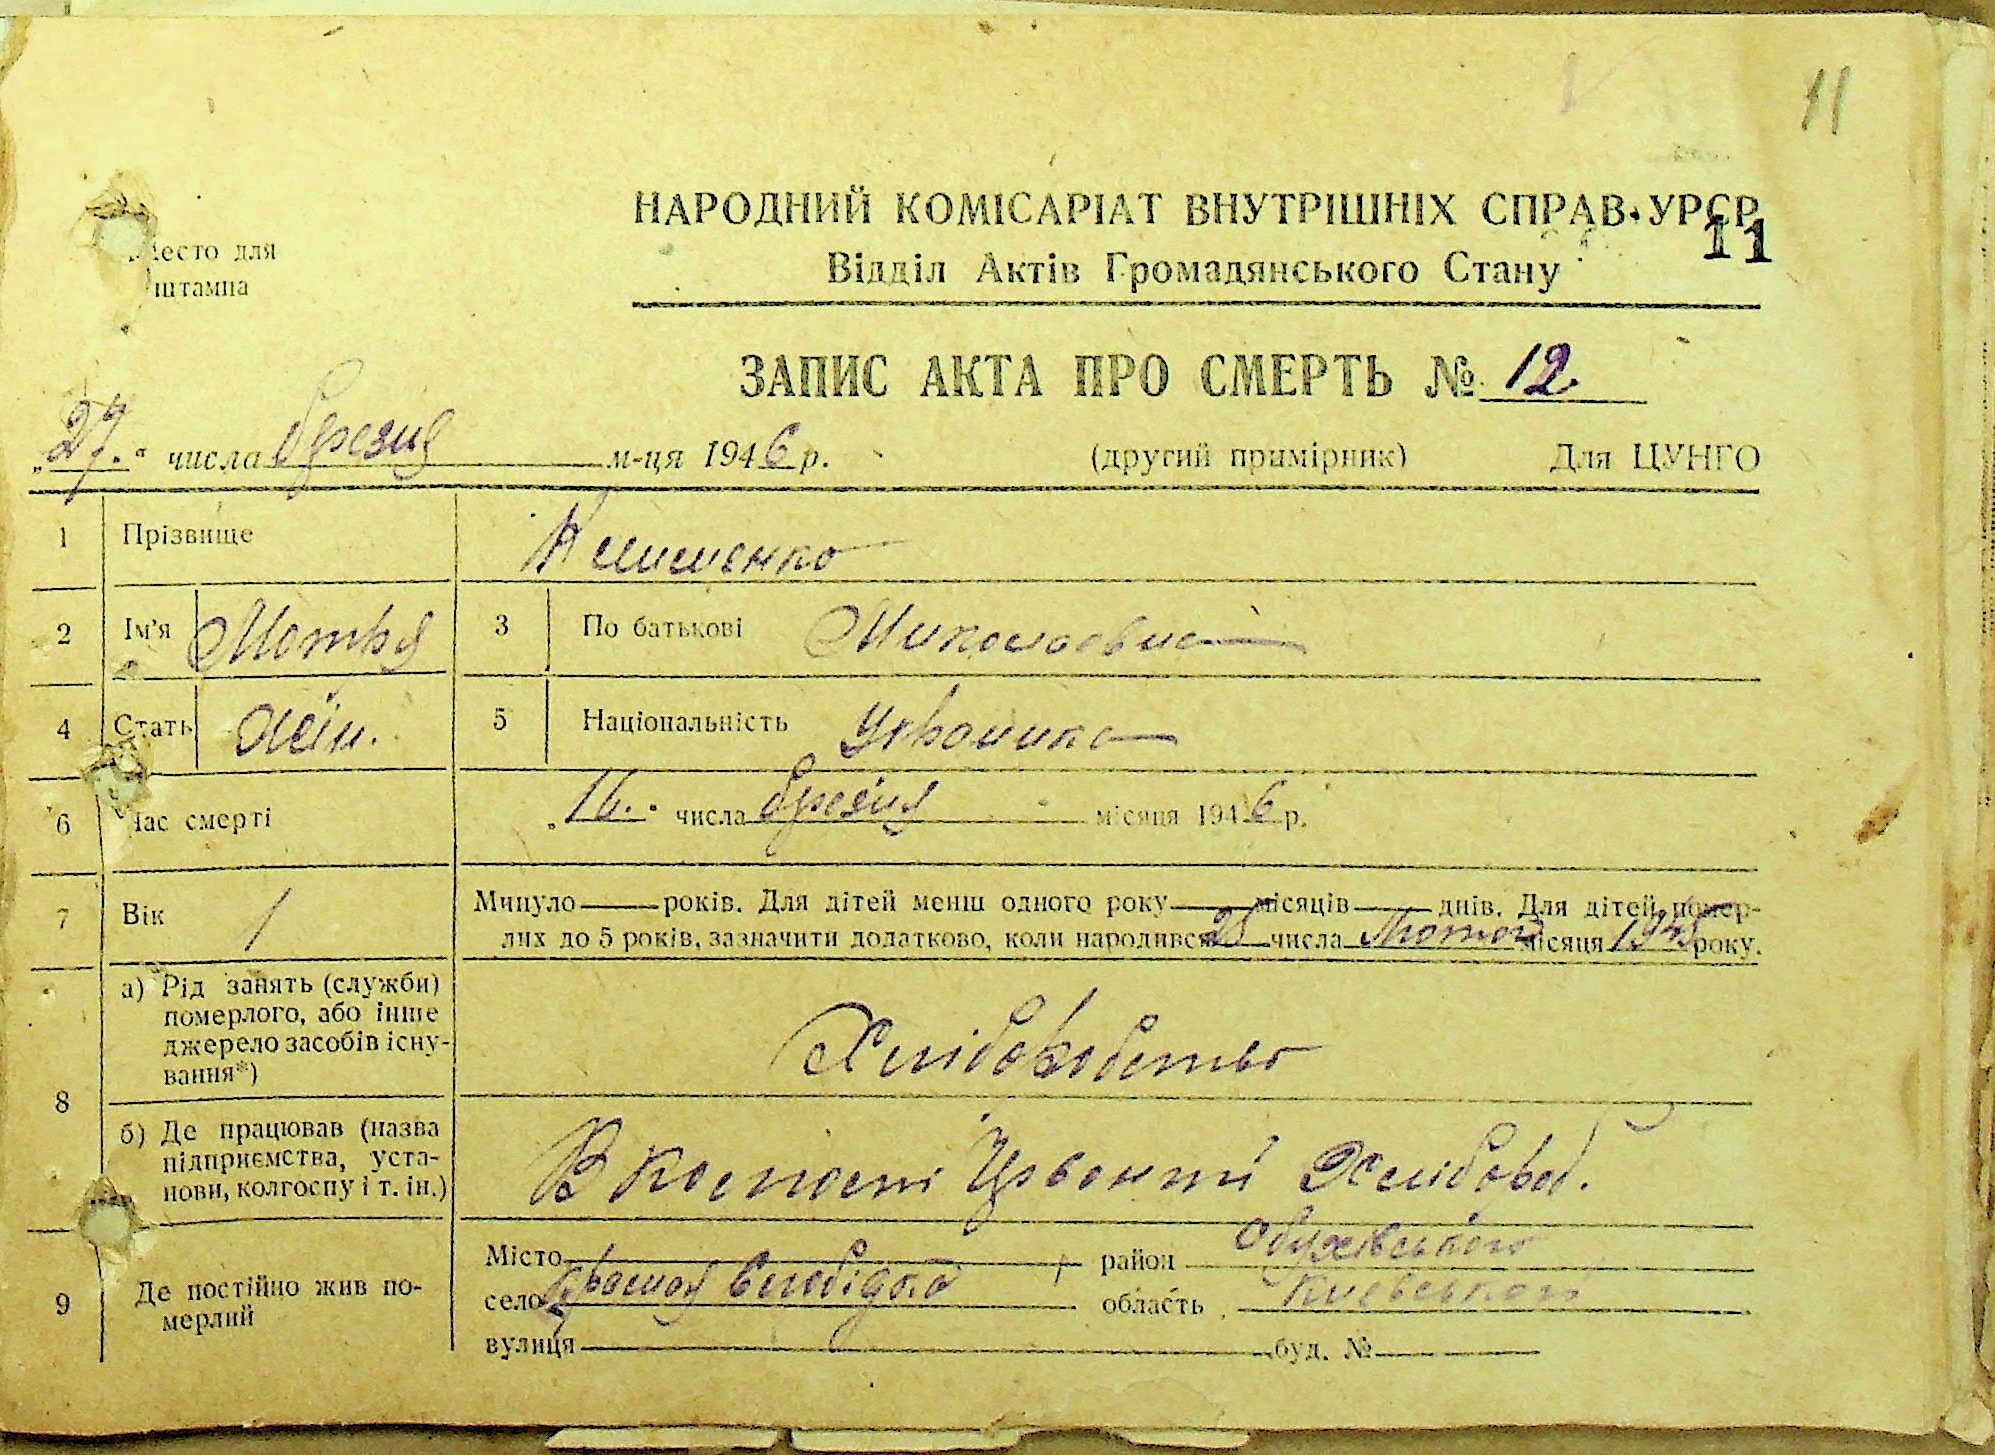 11
НАРОДНИЙ КОМІСАРІАТ ВНУТРІШНІХ СПРАВ УРСР
11
Место для
штампа
Відділ Актів Громадянського Стану
ЗАПИС АКТА ПРО СМЕРТЬ № 12
„27." числа березня м-ця 1946 р. (другий примірник) Для ЦУНГО
1 Прізвище Клименко
2 Ім'я Мотря 3 По батькові
4 Стать жін. 5 Національність Українка
6 Час смерті „16." числа березня місяця 1946 р.
7 Вік 1 Минуло років. Для дітей менш одного року місяців днів. Для дітей помер-
лих до 5 років, зазначити додатково, коли народився 25 числа місяця 1945 року.
8 а) Рід занять (служби)
померлого, або інше
джерело засобів існу-
вання*)
Хліборобство
б) Де працював (назва
підприємства, уста-
нови, колгоспу і т. ін.)
В колгоспі Хлібороб.
9 Де постійно жив по-
мерлий
Місто район Обухівського
село Красная Слобідка область Київської
вулиця буд. №